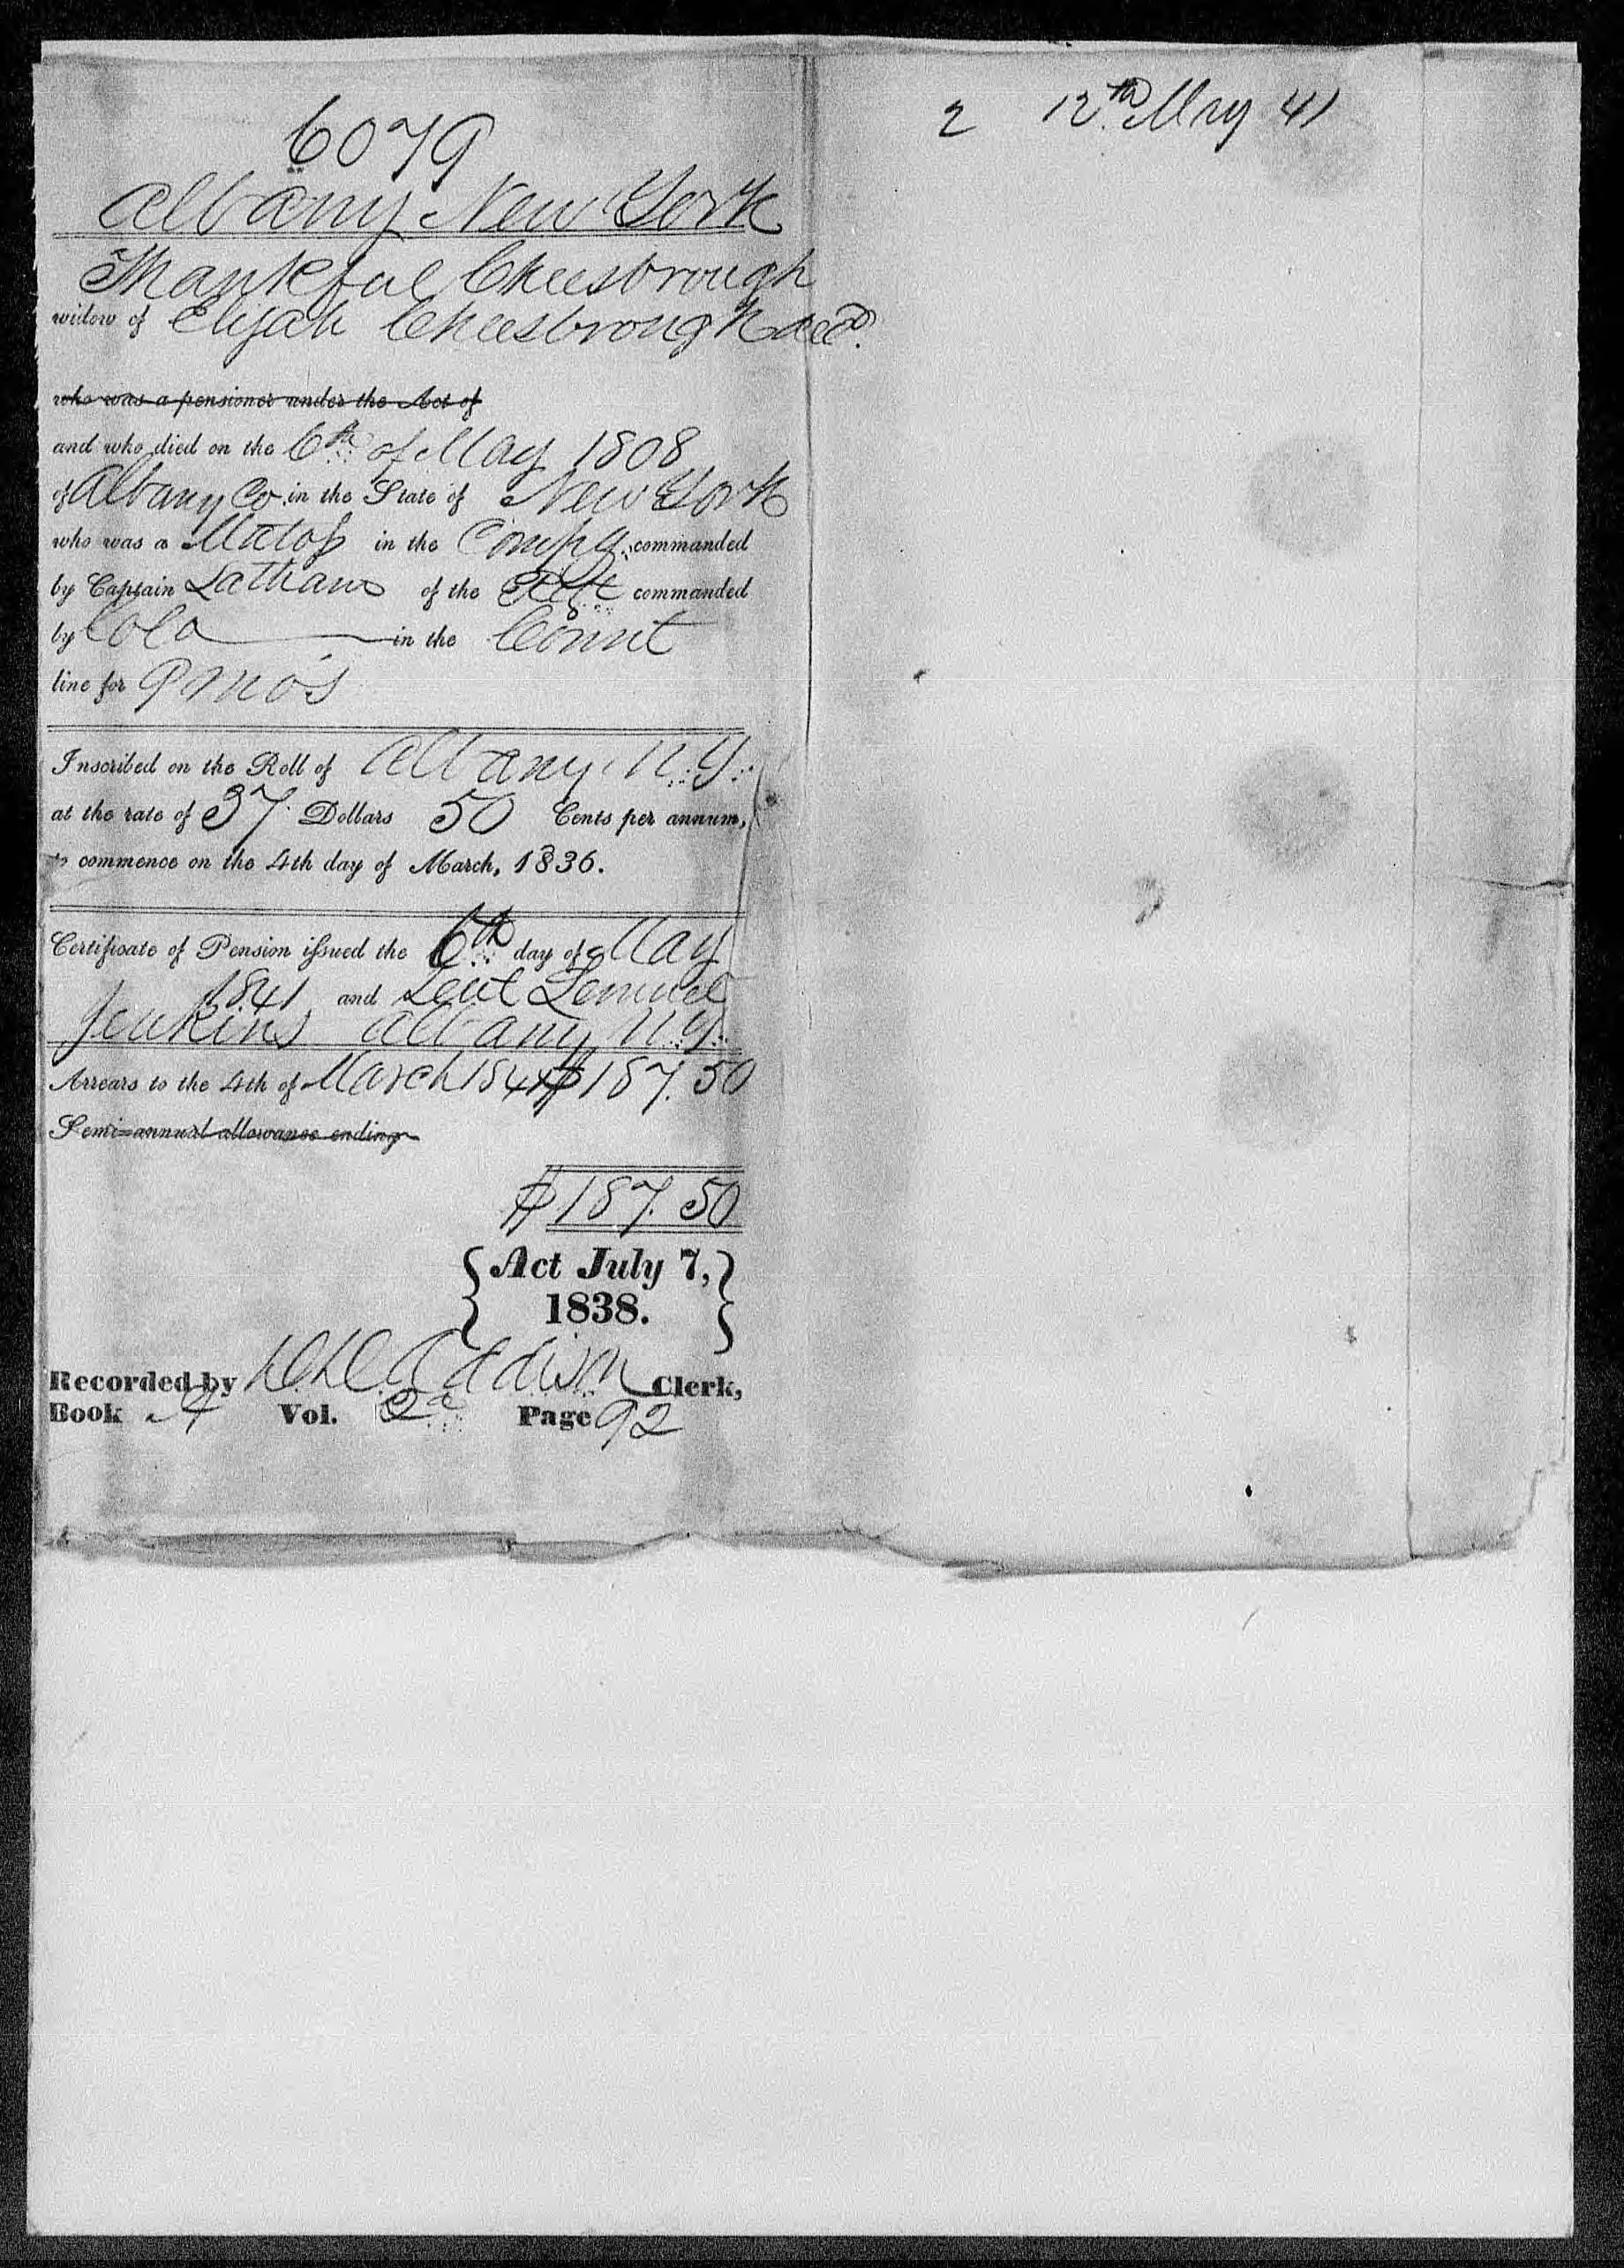 6079
Albany New York
Thankful Cheesbrough
widow of Elijah Cheesbrough decd.
who was a pensioner under the Act of
and who died on the 6th of May 1808
of Albany Co. in the State of New York
who was a Matoss in the Compy. commanded
by Captain Lathams of the Regt commanded
by Colo in the Connt
line for 9 mos
Inscribed on the Roll of Albany N.Y.
at the rate of 37 Dollars 50 Cents per annum,
to commence on the 4th day of March, 1836.
Certificate of Pension issued the 6th day of May
1841 and Sent Lemuel
Jenkins Albany N.Y.
Arrears to the 4th of March 1841 $187.50
Semi-annual allowance ending
$187.50
Act July 7,
1838.
Recorded by Addison Clerk,
Book A Vol. 2d Page 92
2 12th May 41